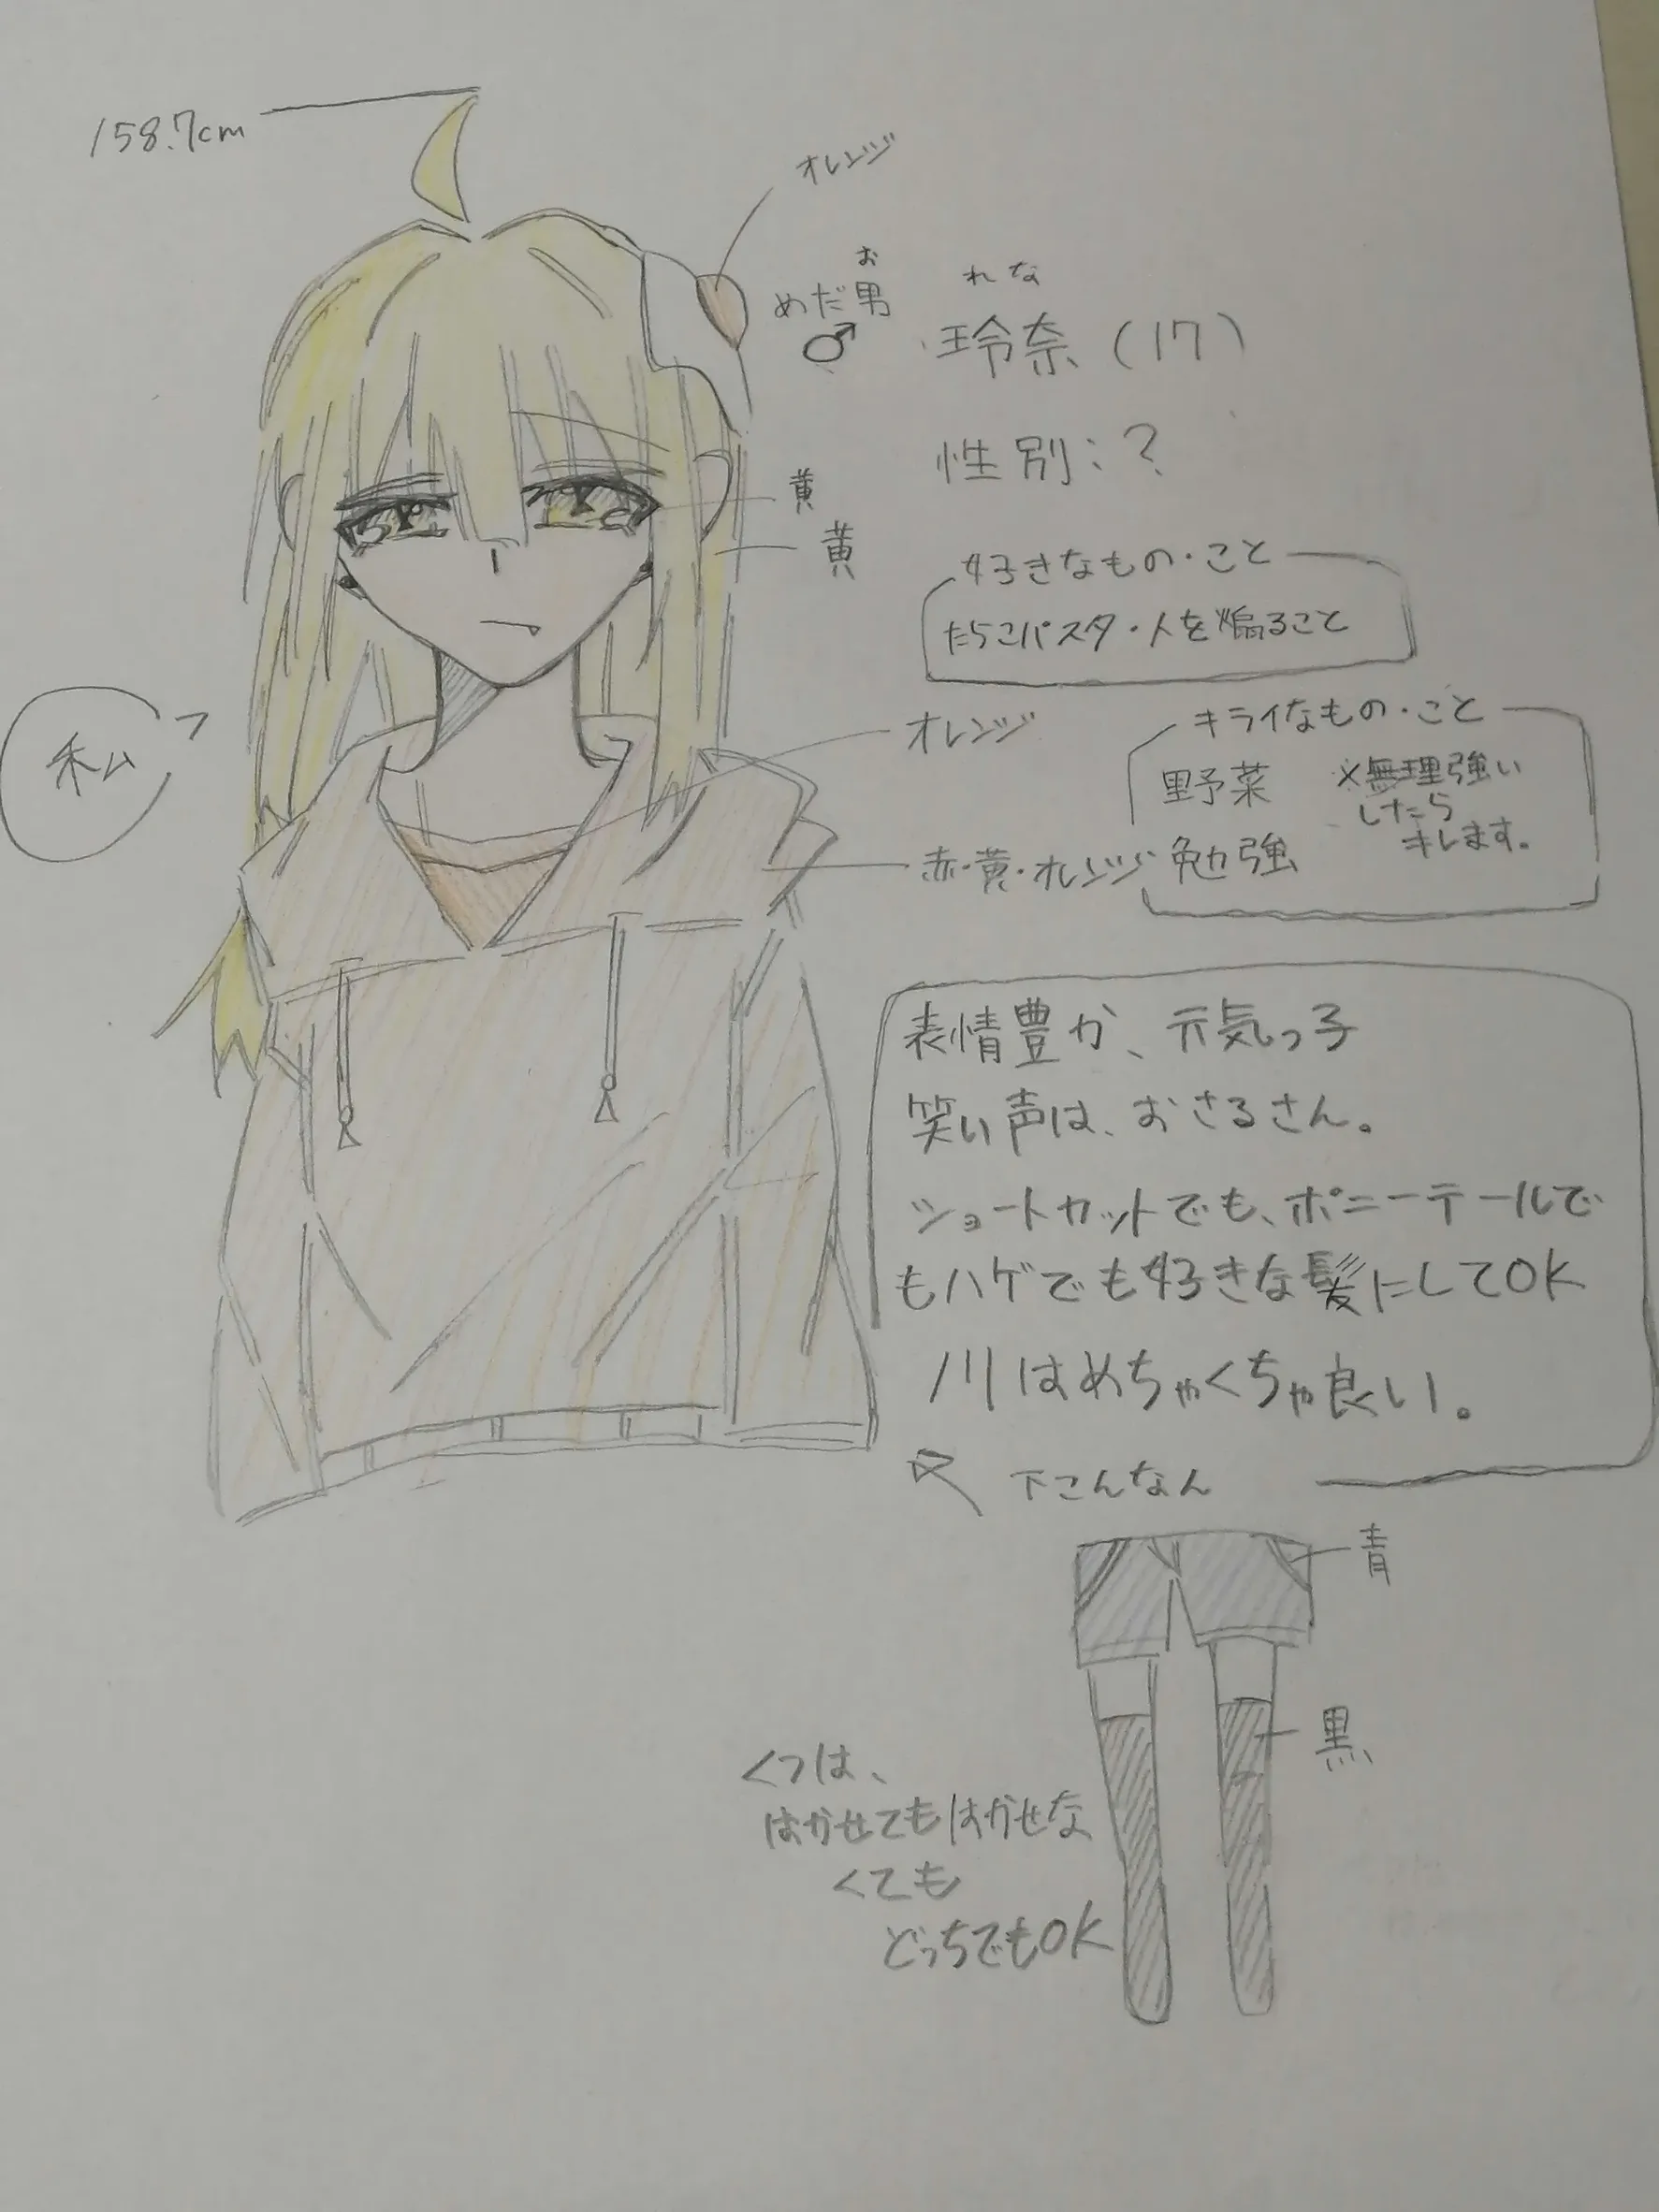 158.7cm
オレンジ
お
めだ男
♂
れな
玲奈(17)
性別:?
黄
黄
好きなもの・こと
たらこパスタ・人を煽ること
私
オレンジ
赤・黄・オレンジ
キライなもの・こと
野菜
※無理強い
したら
キレます。
勉強
表情豊か、元気っ子
笑い声は、おさるさん。
ショートカットでも、ポニーテールで
もハゲでも好きな髪にしてOK
ノリはめちゃくちゃ良い。
下こんなん
青
黒
くつは、
はかせてもはかせな
くても
どっちでもOK